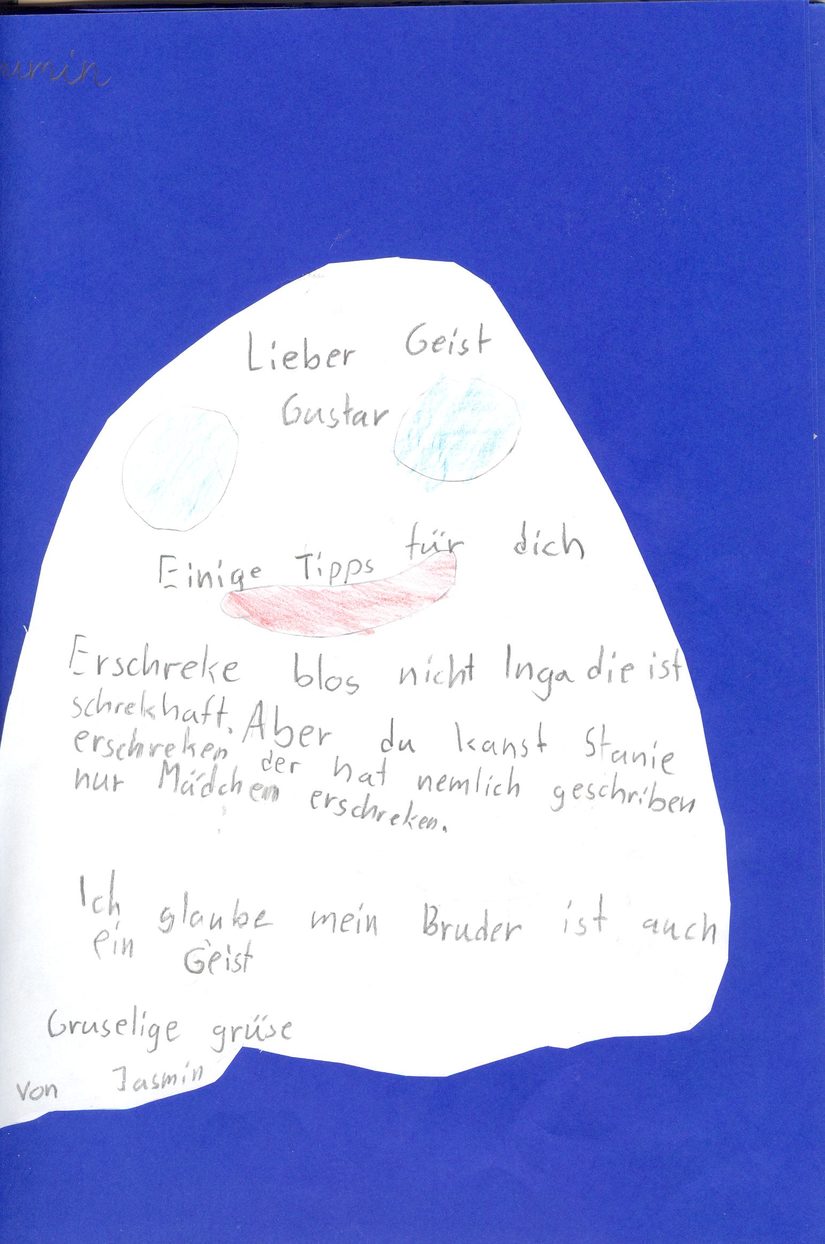 umin
Lieber Geist
Gustav
Einige Tipps für dich
Erschreke blos nicht Inga die ist
schrekhaft. Aber du kanst Stanie
erschreken der hat nemlich geschriben
nur Mädchen erschreken.
Ich glaube mein Bruder ist auch
ein Geist
Gruselige grüse
von Jasmin